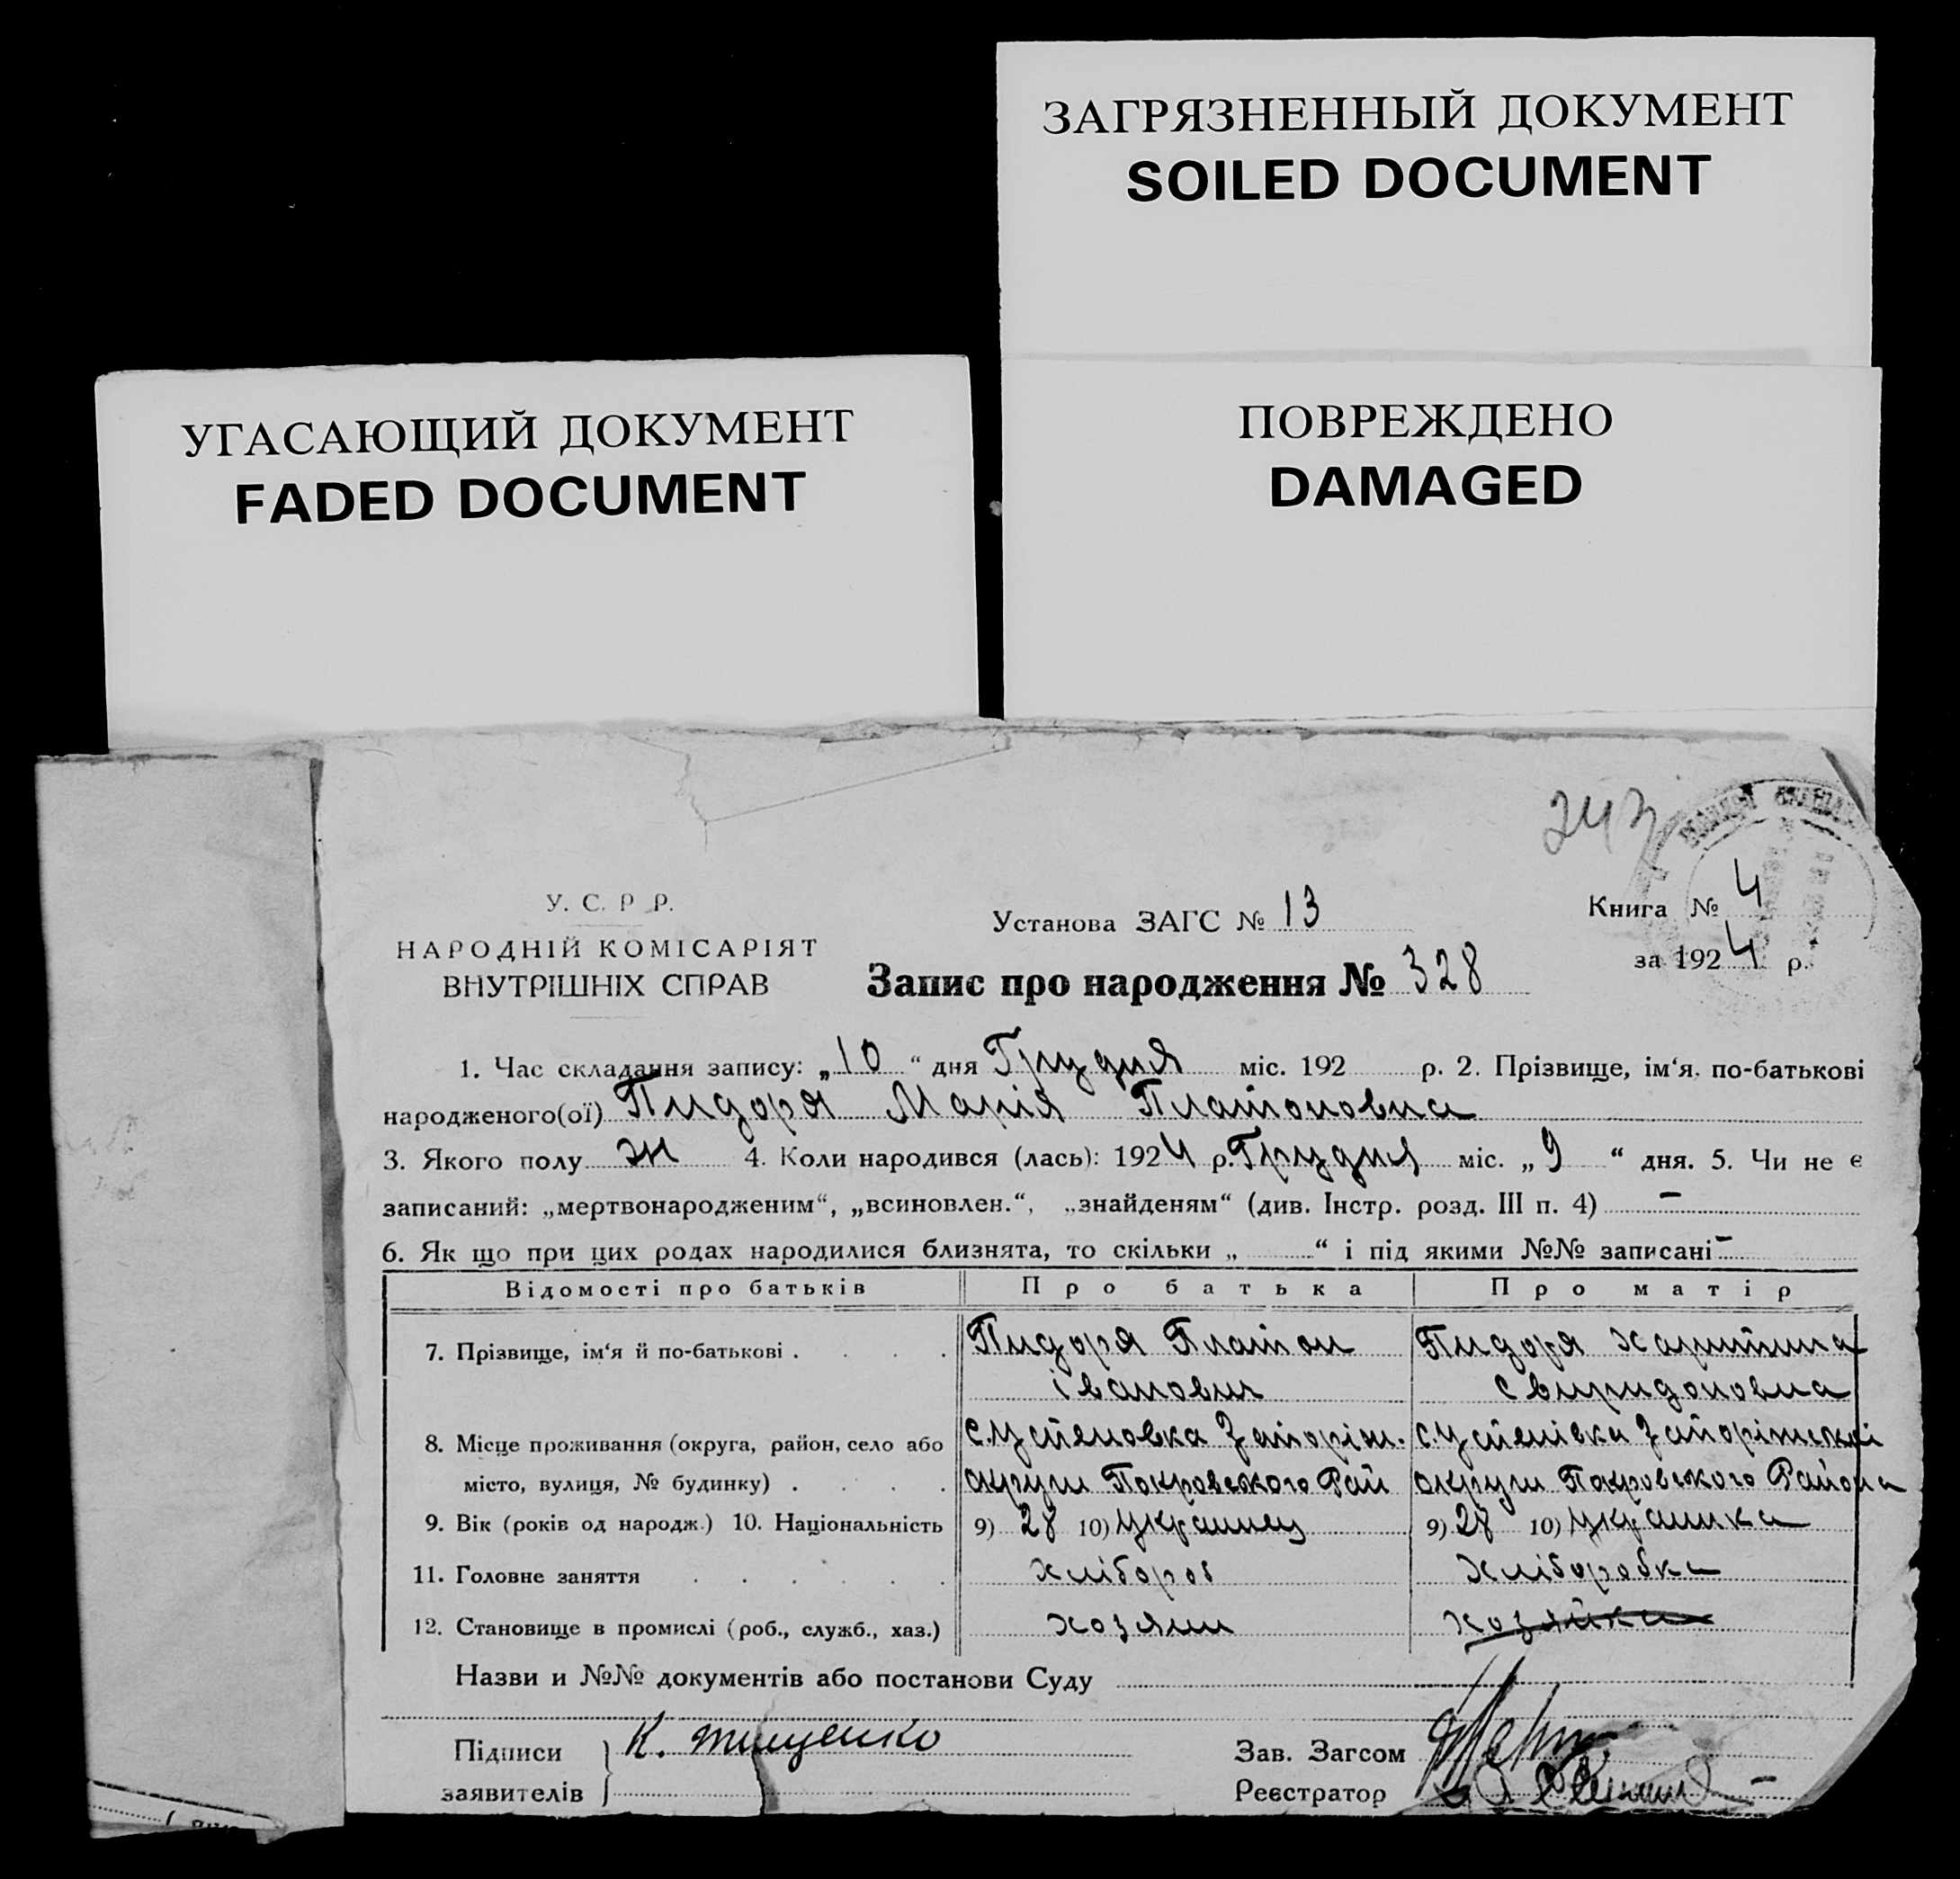 ЗАГРЯЗНЕННЫЙ ДОКУМЕНТ
SOILED DOCUMENT
УГАСАЮЩИЙ ДОКУМЕНТ
FADED DOCUMENT
ПОВРЕЖДЕНО
DAMAGED
243
У. С. Р Р.
НАРОДНІЙ КОМІСАРІЯТ
ВНУТРІШНІХ СПРАВ
Установа ЗАГС № 13
Запис про народження № 328
Книга № 4
за 1924 р.
1. Час складання запису: „10“ дня Грудня міс. 192 р. 2. Прізвище, ім‘я, по-батькові
народженого(ої) Пидоря Марія Платоновна
3. Якого полу ж 4. Коли народився (лась): 1924 р. Грудня міс. „9“ дня. 5. Чи не є
записаний: „мертвонародженим“, „всиновлен.“, „знайденям“ (див. Інстр. розд. III п. 4) –
6. Як що при цих родах народилися близнята, то скільки „ “ і під якими №№ записані –
Відомості про батьків Про батька Про матір
7. Прізвище, ім‘я й по-батькові . . . . Пидоря Платон Пидоря Харитина
іванович Свиридоновна
8. Місце проживання (округа, район, село або с. Устеновка Запоріж. с. Устенівка Запоріжскої
місто, вулиця, № будинку) . . . . округи Покровського Рай округи Покровського Района
9. Вік (років од народж.) 10. Національність 9) 28 10) Украинец 9) 28 10) Украинка
11. Головне заняття . . . . . . хлібороб хлібо­робка
12. Становище в промислі (роб., служб., хаз.) хозяин хозяйка
Назви и №№ документів або постанови Суду
Підписи К. Тищенко Зав. Загсом
заявителів Реєстратор